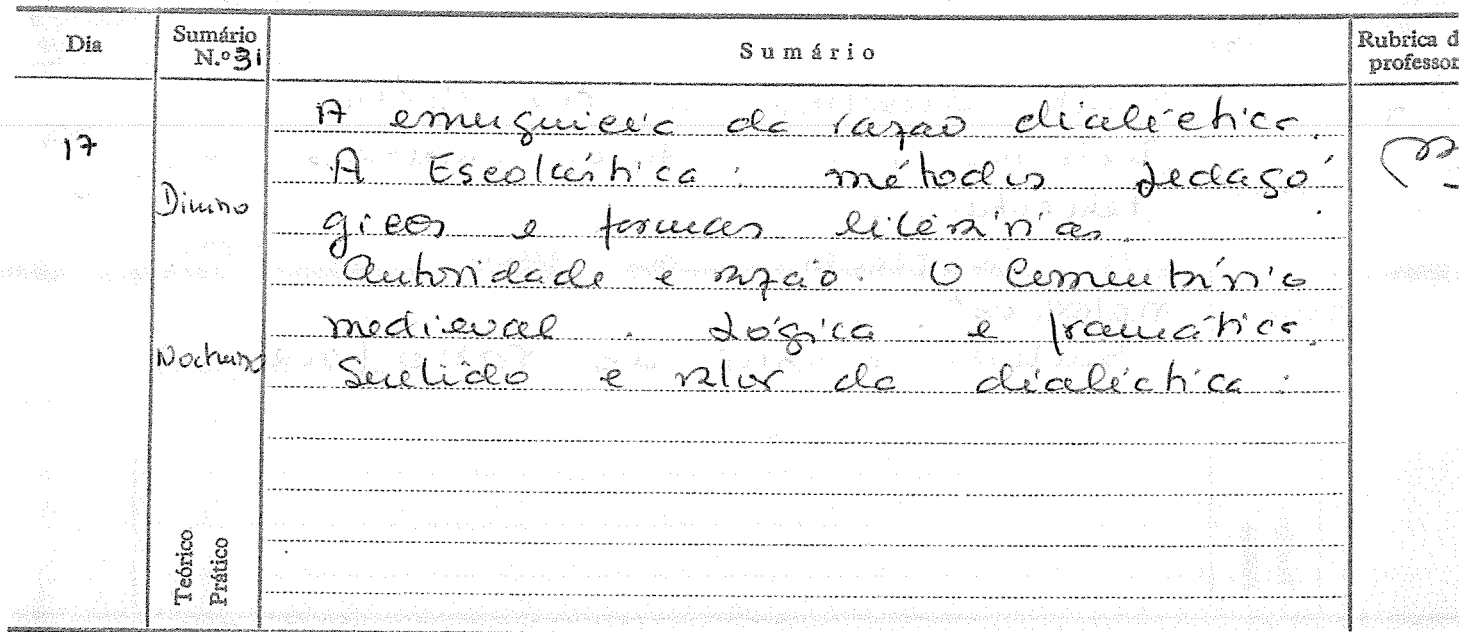 Dia
Sumário
N.º 31
Sumário
Rubrica d
professor
17
Diurno
Nocturno
A emergência da razão dialéctica.
A Escolástica: métodos pedagó
gicos e formas literárias.
Autoridade e razão. O Comentário
medieval. Lógica e gramática.
Sentido e valor da dialéctica.
Teórico
Prático